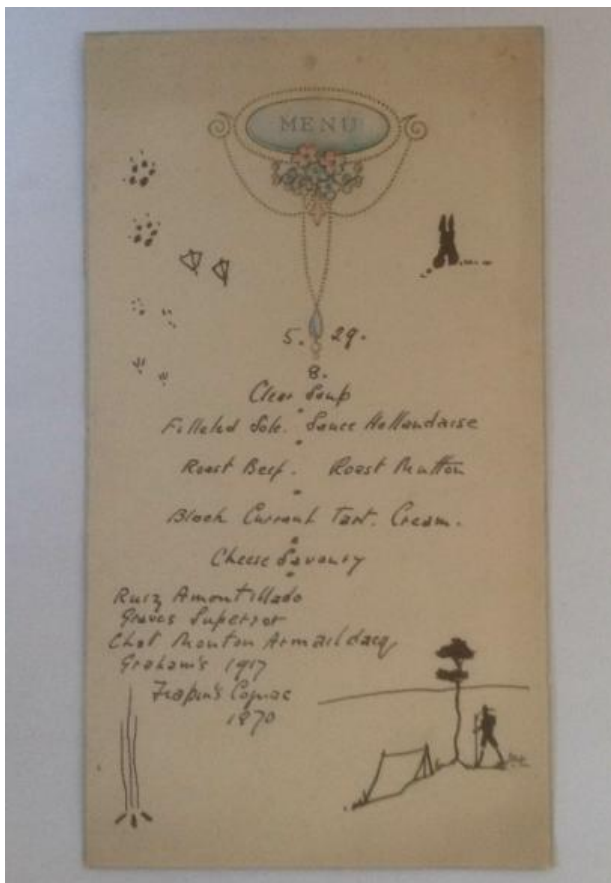 MENU
5. 29.
8.
Clear Soup
Filleted Sole. Sauce Hollandaise
Roast Beef. Roast Mutton
Black Currant Tart. Cream.
Cheese Savoury
Ruiz Amontillado
Graves Superior
Chat Mouton Armaildacq
Graham's 1917
Frapin's Cognac
1870